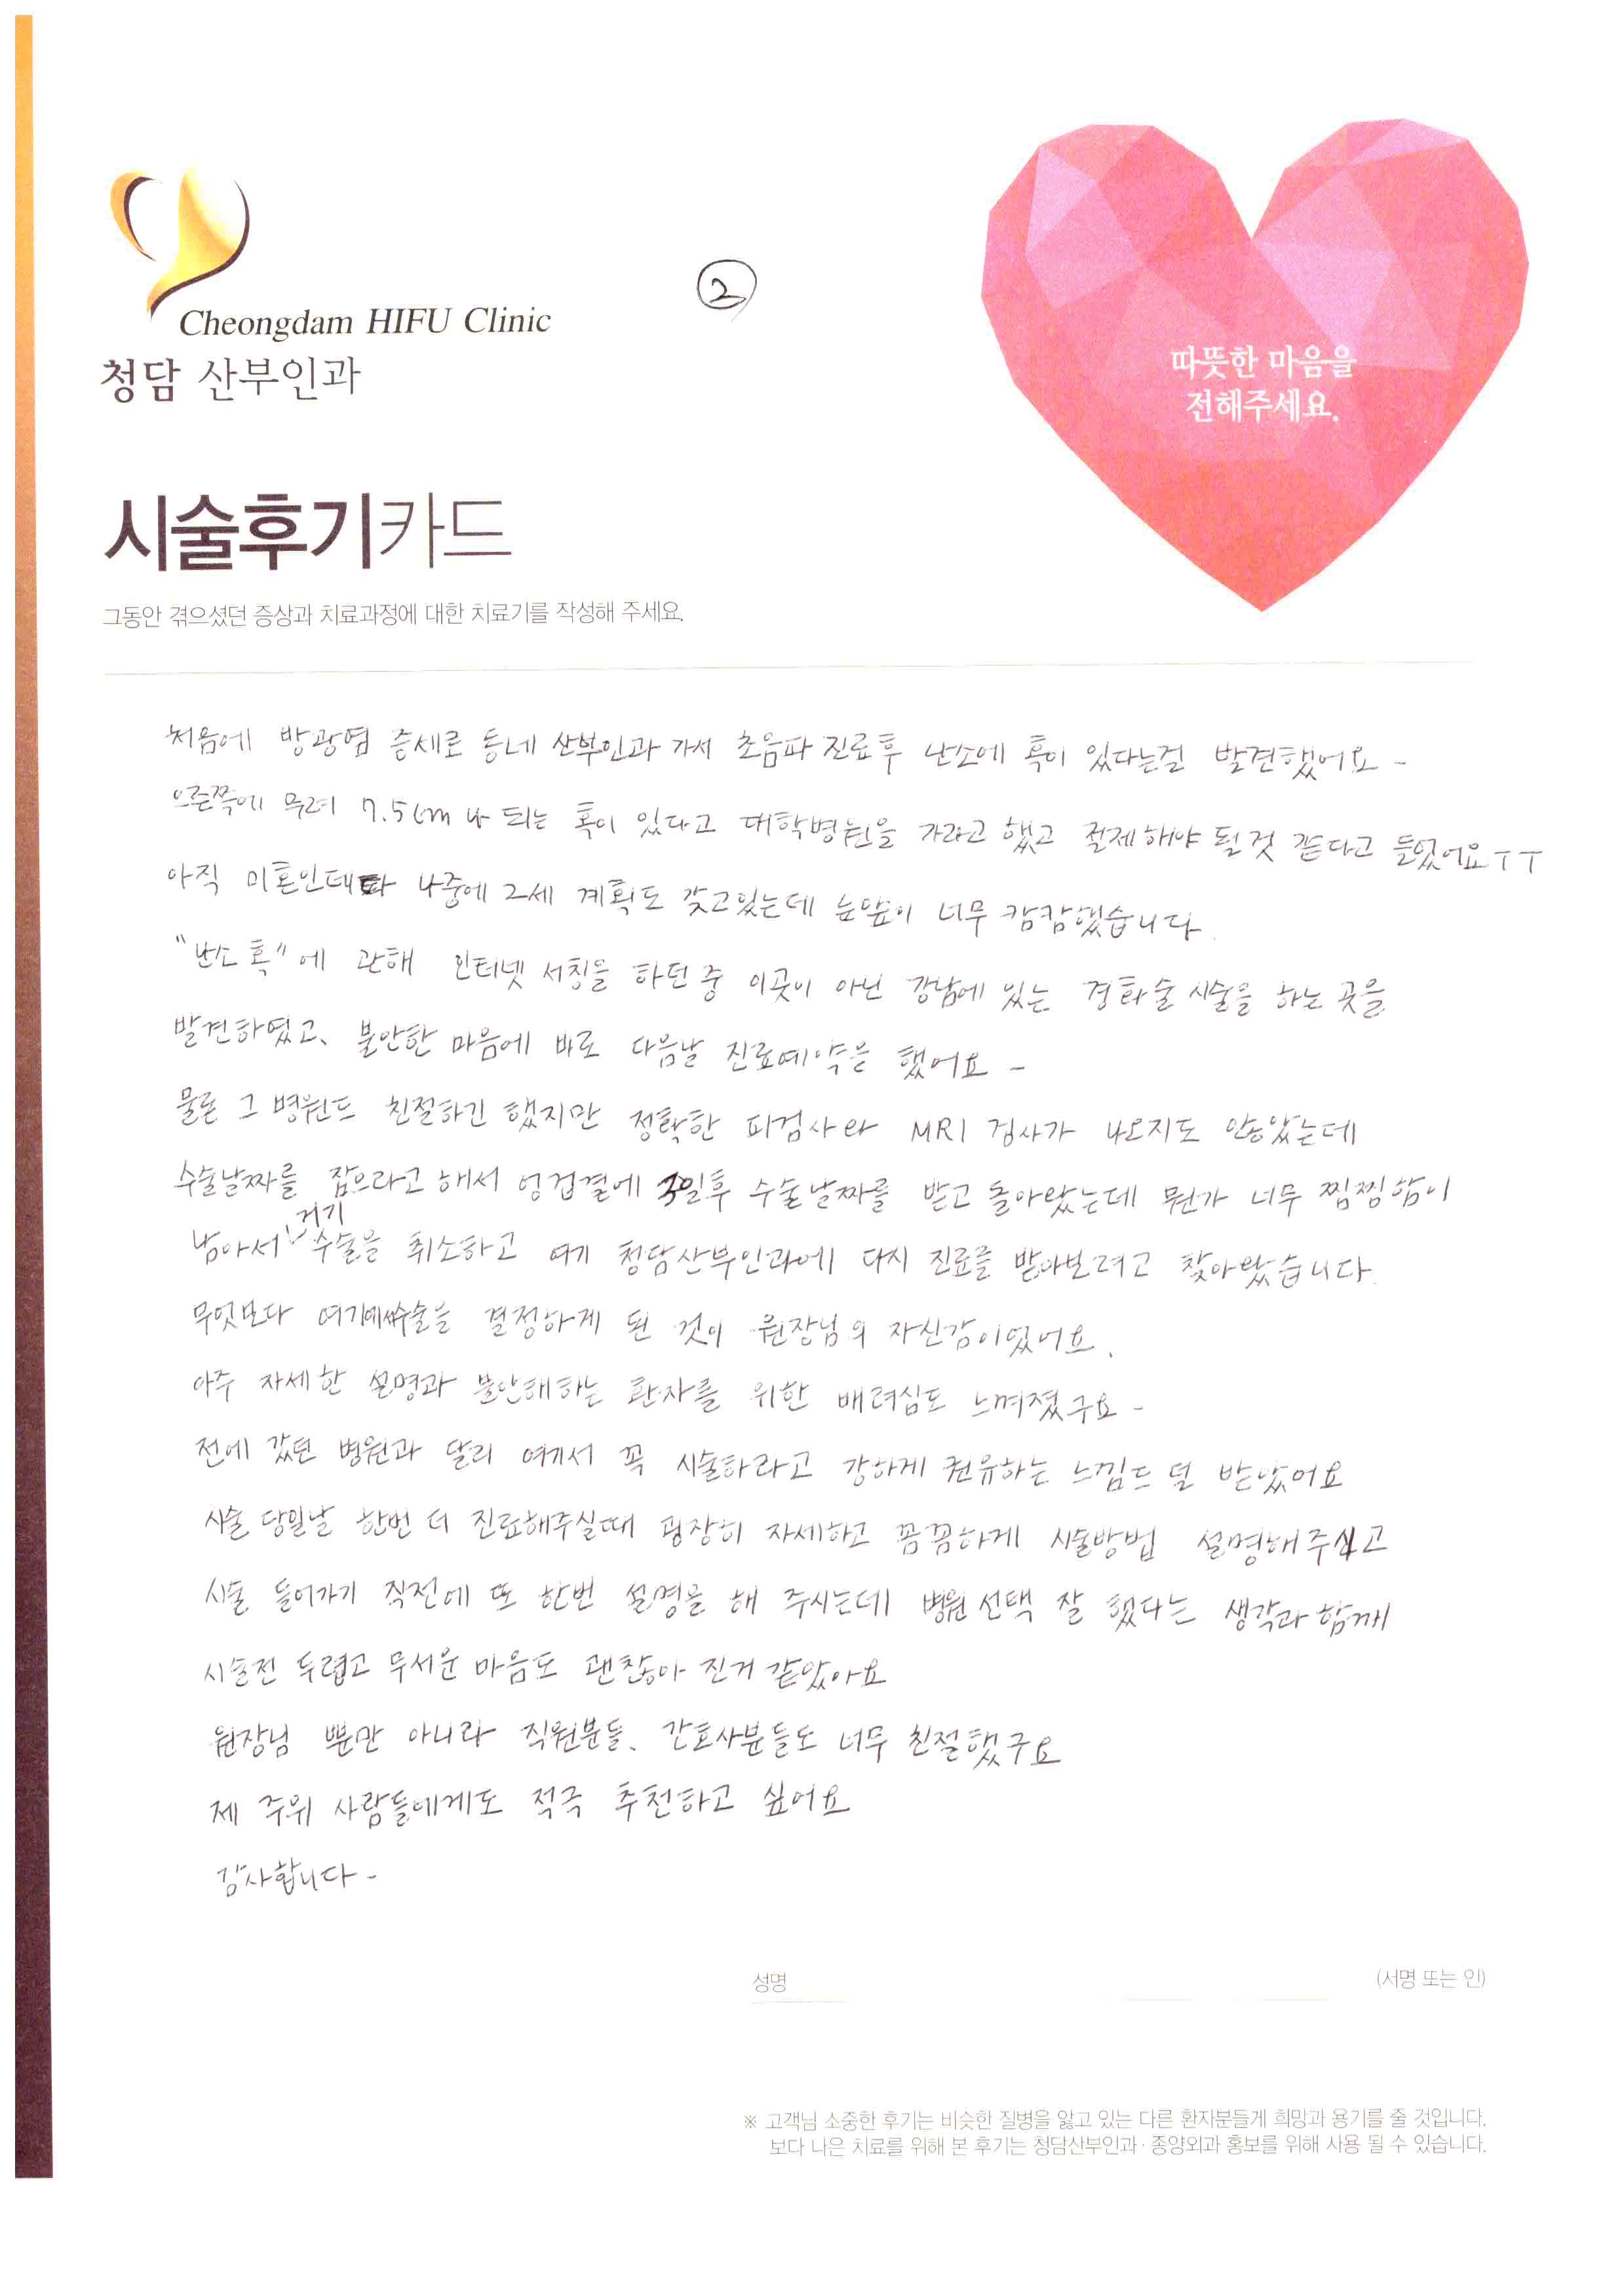 Cheongdam HIFU Clinic
청담 산부인과
②
따뜻한 마음을
전해주세요.
시술후기카드
그동안 겪으셨던 증상과 치료과정에 대한 치료기를 작성해 주세요.
처음에 방광염 증세로 동네 산부인과 가서 초음파 진료후 난소에 혹이 있다는걸 발견했어요 -
오른쪽에 무려 7.5cm 나 되는 혹이 있다고 대학병원을 가라고 했고 절제해야 될것 같다고 들었어요ㅜㅜ
아직 미혼인데다 나중에 2세 계획도 갖고있는데 눈앞이 너무 캄캄했습니다.
"난소 혹"에 관해 인터넷 서칭을 하던 중 이곳이 아닌 강남에 있는 경화술 시술을 하는 곳을
발견하였고, 불안한 마음에 바로 다음날 진료예약을 했어요 -
물론 그 병원도 친절하긴 했지만 정확한 피검사와 MRI 검사가 나오지도 않았는데
수술날짜를 잡으라고 해서 엉겁결에 3일후 수술날짜를 받고 돌아왔는데 뭔가 너무 찜찜함이
남아서 거기 수술을 취소하고 여기 청담산부인과에 다시 진료를 받아보려고 찾아왔습니다.
무엇보다 여기에서수술을 결정하게 된 것이 원장님의 자신감이었어요.
아주 자세한 설명과 불안해하는 환자를 위한 배려심도 느껴졌구요 -
전에 갔던 병원과 달리 여기서 꼭 시술하라고 강하게 권유하는 느낌도 덜 받았어요
시술 당일날 한번 더 진료해주실때 굉장히 자세하고 꼼꼼하게 시술방법 설명해주시고
시술 들어가기 직전에 또 한번 설명을 해 주시는데 병원 선택 잘 했다는 생각과 함께
시술전 두렵고 무서운 마음도 괜찮아 진거 같았아요
원장님 뿐만 아니라 직원분들, 간호사분들도 너무 친절했구요
제 주위 사람들에게도 적극 추천하고 싶어요
감사합니다 -
성명 (서명 또는 인)
※ 고객님 소중한 후기는 비슷한 질병을 앓고 있는 다른 환자분들게 희망과 용기를 줄 것입니다.
보다 나은 치료를 위해 본 후기는 청담산부인과 · 종양외과 홍보를 위해 사용 될 수 있습니다.